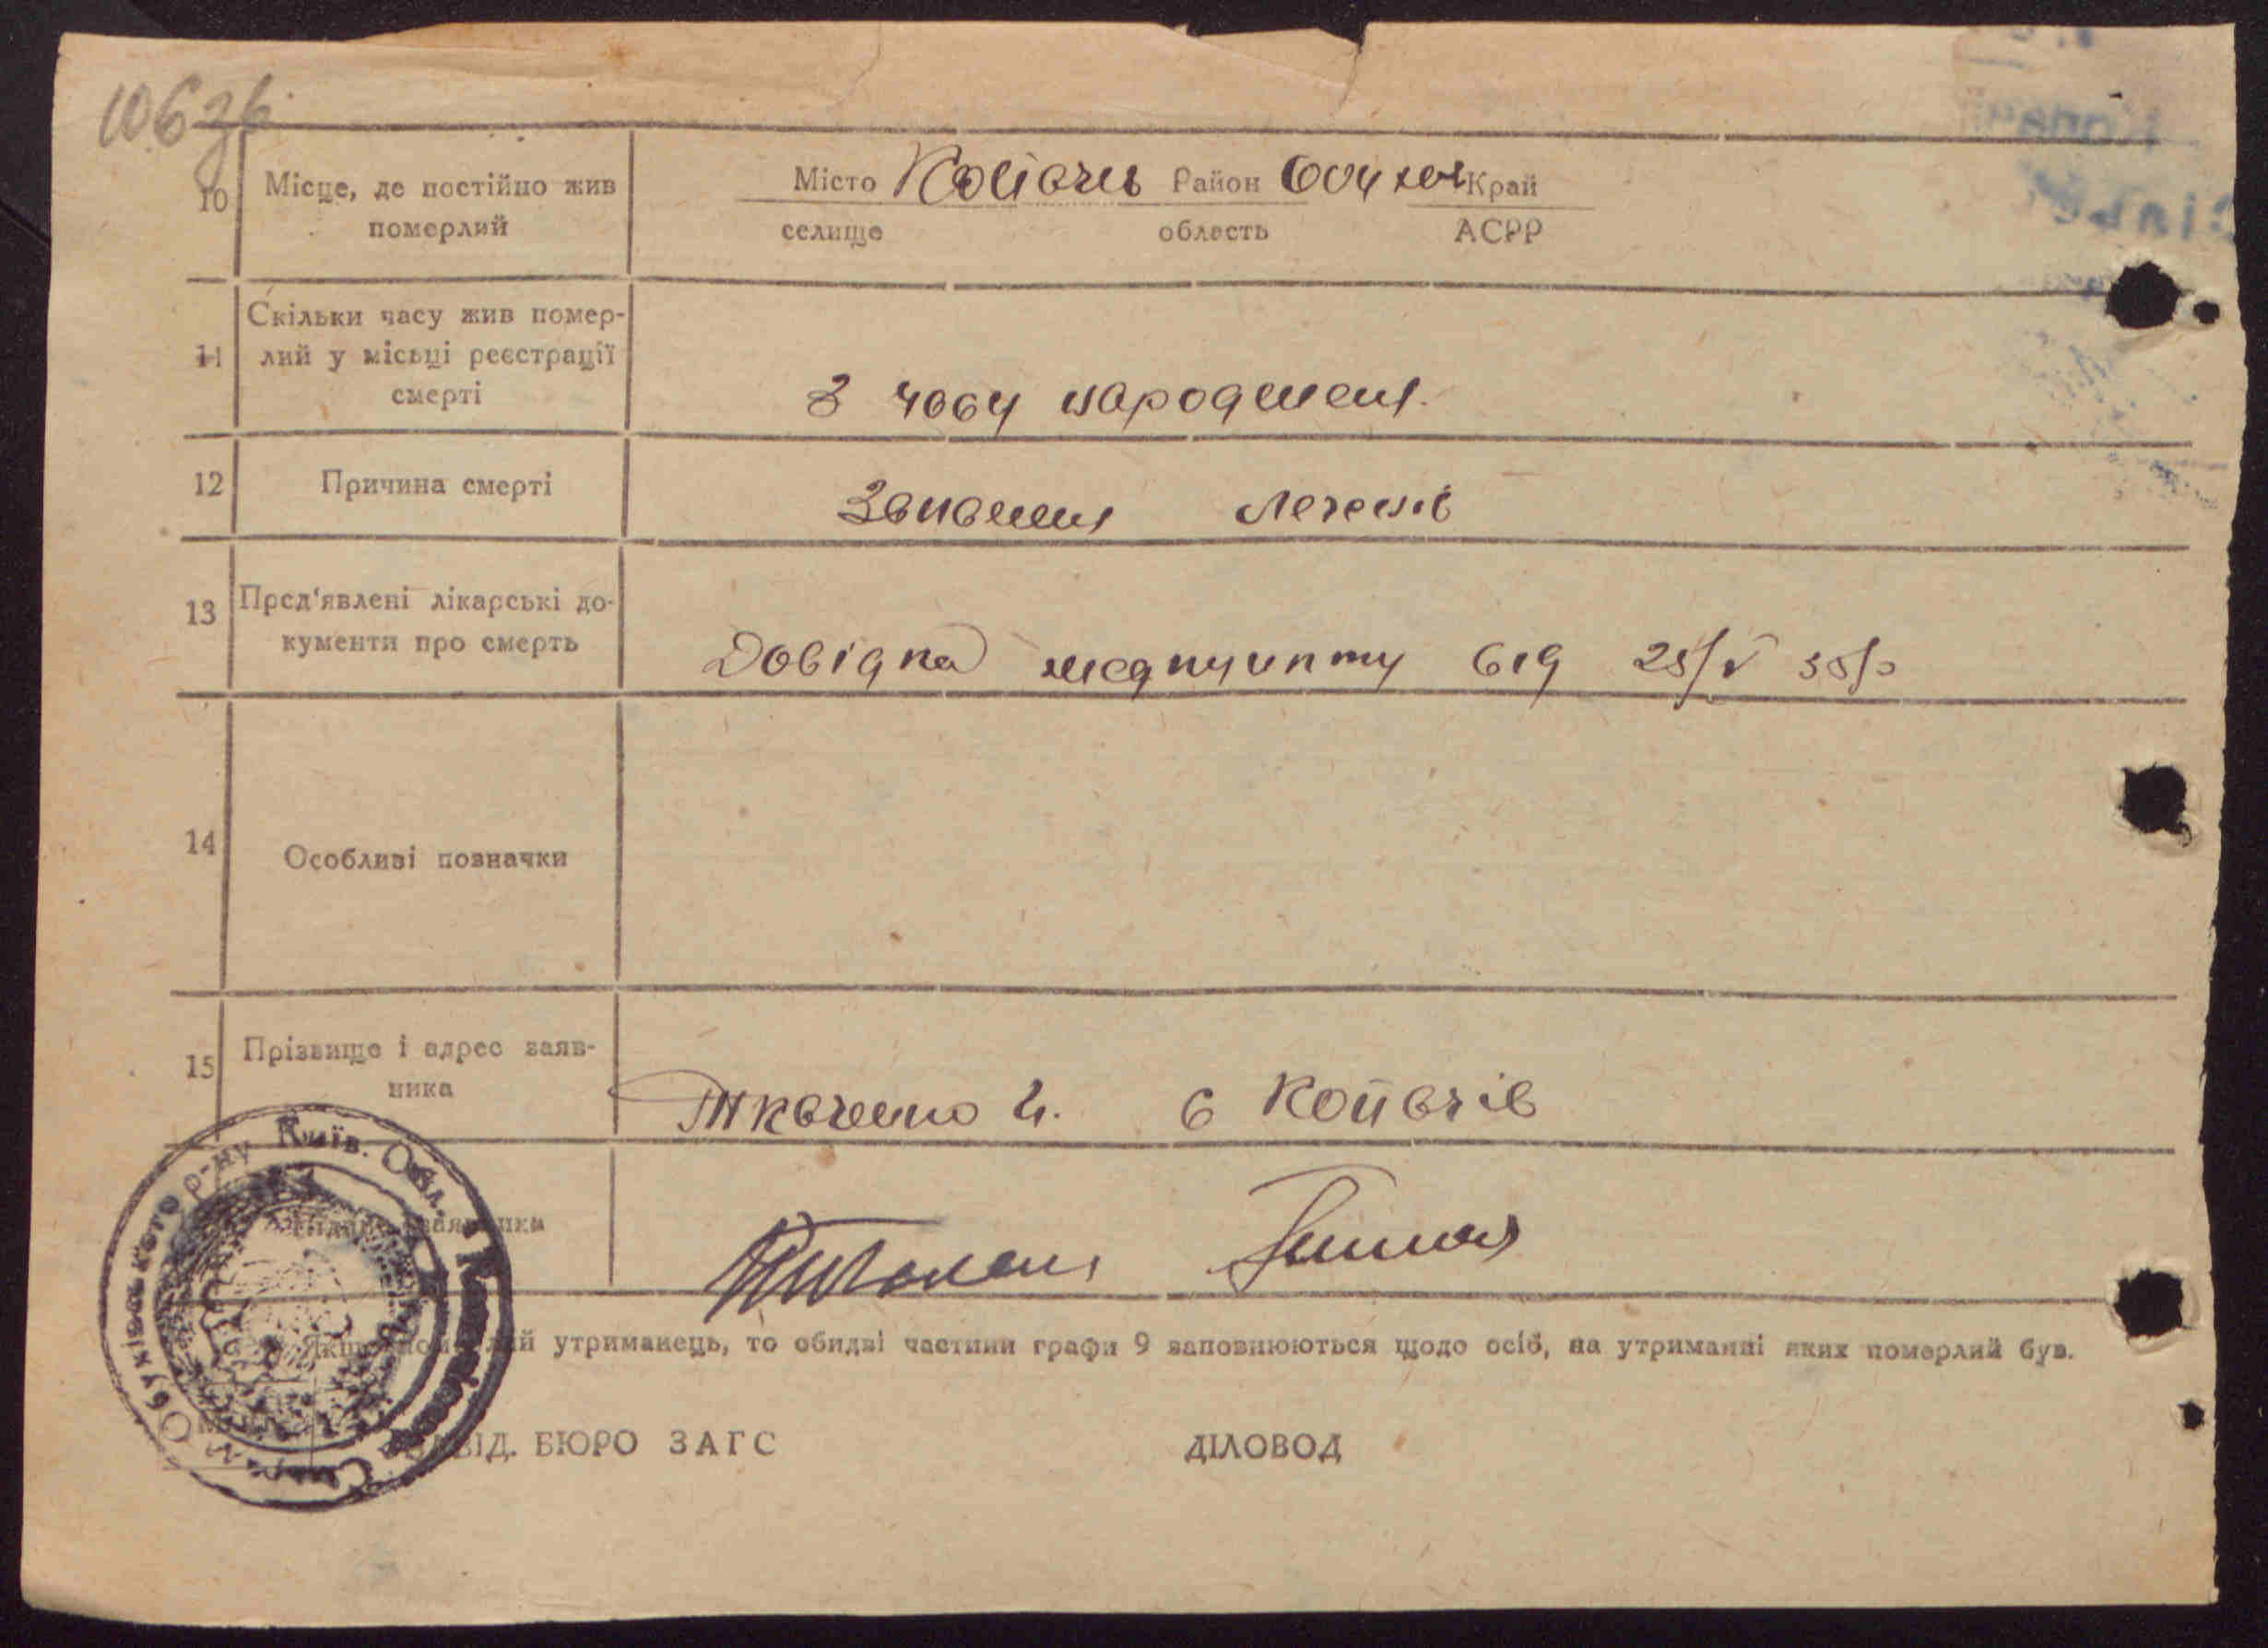 106зв
10 Місце, де постійно жив
померлий
Місто Копачів Район Обухів Край
селище область АСРР
11 Скільки часу жив помер-
лий у місьці реєстрації
смерті
З часу народження.
12 Причина смерті
Запалення легенів
13 Пред'явлені лікарські до-
кументи про смерть
Довідка медпункту від
14 Особливі позначки
15 Прізвище і адрес заяв-
ника
Ткаченко с Копачів
Якщо померлий утриманець, то обидві частини графи 9 заповнюються щодо осіб, на утриманні яких померлий був.
ЗАВІД. БЮРО ЗАГС ДІЛОВОД
Обухівського р-ну Київ. Обл.